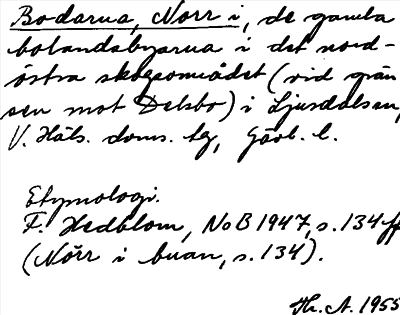 Bodarna, Norr i, de gamla
bolandsbyarna i det nord-
östra skogsområdet (vid grän
sen mot Delsbo) i Ljusdalssn,
V. Häls. doms. tg, Gävl. l.
Etymologi.
F. Hedblom, NoB 1947, s. 134 ff
(Nörr i buan, s. 134).
Th. A. 1955